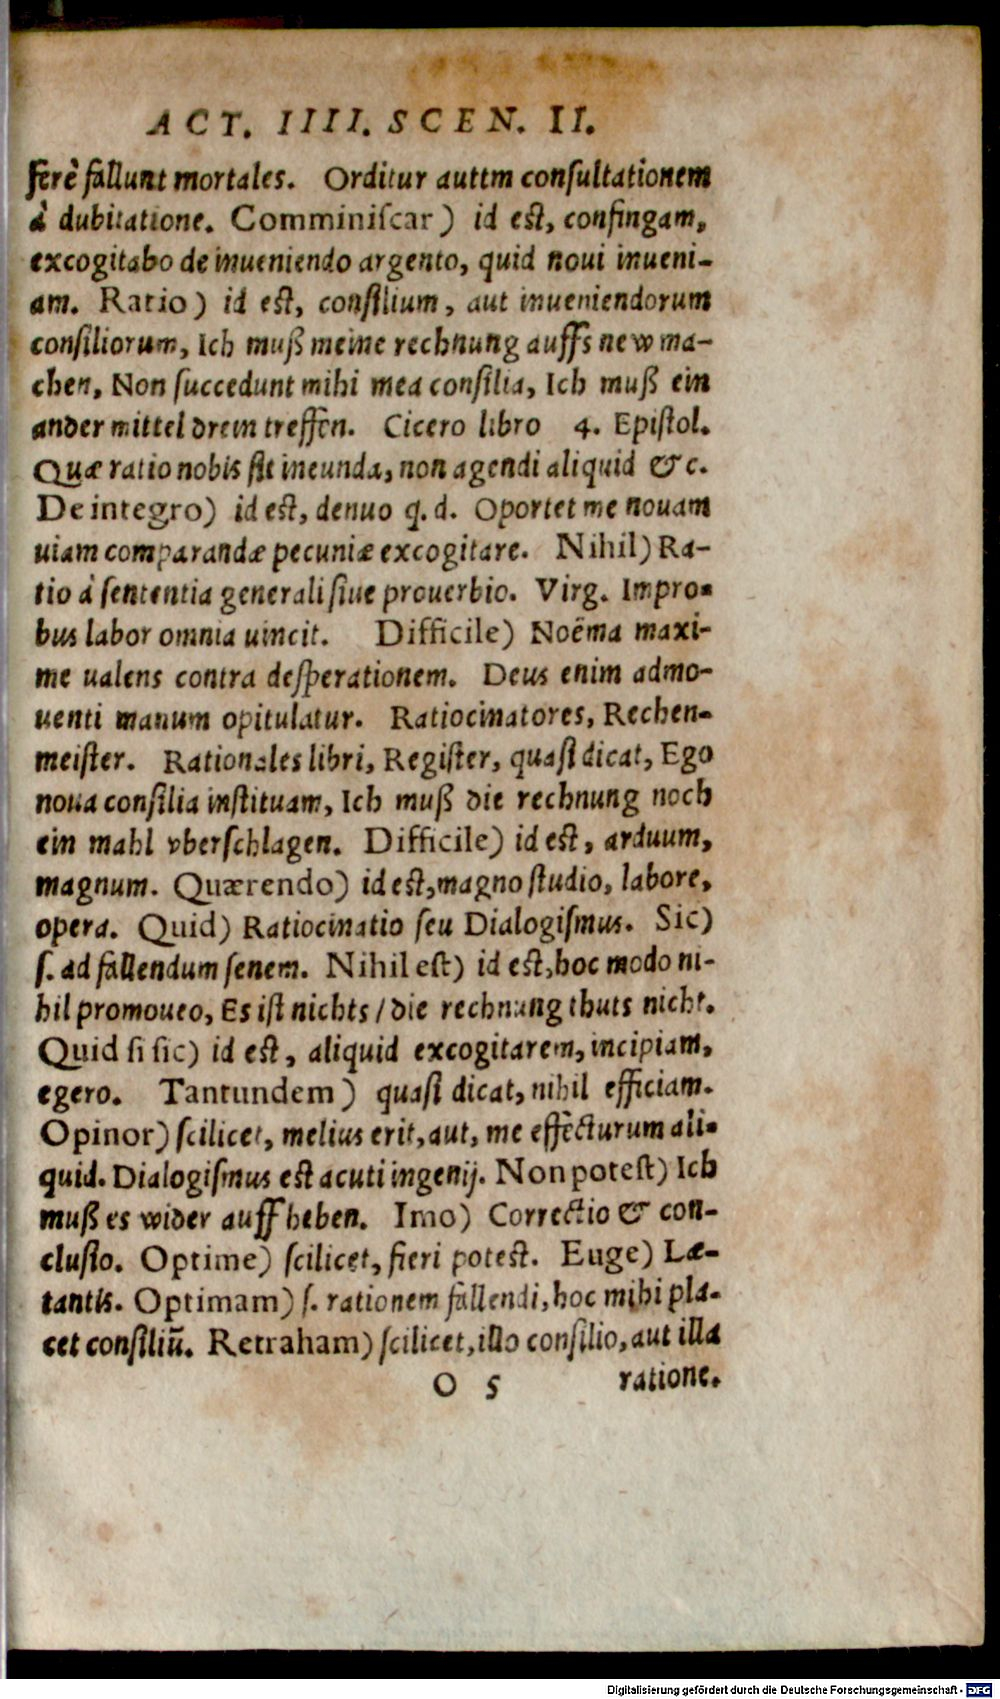 ACT. IIII. SCEN. II.
ferè fallunt mortales. Orditur auttm consultationem
à dubitatione. Comminiscar) id est, confingam,
excogitabo de inueniendo argento, quid noui inueni-
am. Ratio) id est, consilium, aut inueniendorum
consiliorum, Ich muß meine rechnung auffs new ma-
chen, Non succedunt mihi mea consilia, Ich muß ein
ander mittel drein treffen. Cicero libro 4. Epistol.
Quæ ratio nobis sit ineunda, non agendi aliquid & c.
De integro) id est, denuo q. d. Oportet me nouam
uiam comparandæ pecuniæ excogitare. Nihil) Ra-
tio à sententia generali siue prouerbio. Virg. Impro-
bus labor omnia uincit. Difficile) Noëma maxi-
me ualens contra desperationem. Deus enim admo-
uenti manum opitulatur. Ratiocinatores, Rechen-
meister. Rationales libri, Register, quasi dicat, Ego
noua consilia instituam, Ich muß die rechnung noch
ein mahl vberschlagen. Difficile) id est, arduum,
magnum. Quærendo) id est, magno studio, labore,
opera. Quid) Ratiocinatio seu Dialogismus. Sic)
s. ad fallendum senem. Nihil est) id est, hoc modo ni-
hil promoueo, Es ist nichts / die rechnung thuts nicht.
Quid si sic) id est, aliquid excogitarem, incipiam,
egero. Tantundem) quasi dicat, nihil efficiam.
Opinor) scilicet, melius erit, aut, me effecturum ali-
quid. Dialogismus est acuti ingenij. Non potest) Ich
muß es wider auff heben. Imo) Correctio & con-
clusio. Optime) scilicet, fieri potest. Euge) Læ-
tantis. Optimam) s. rationem fallendi, hoc mihi pla-
cet consiliũ. Retraham) scilicet, illo consilio, aut illa
O 5 ratione.
Digitalisierung gefördert durch die Deutsche Forschungsgemeinschaft - DFG